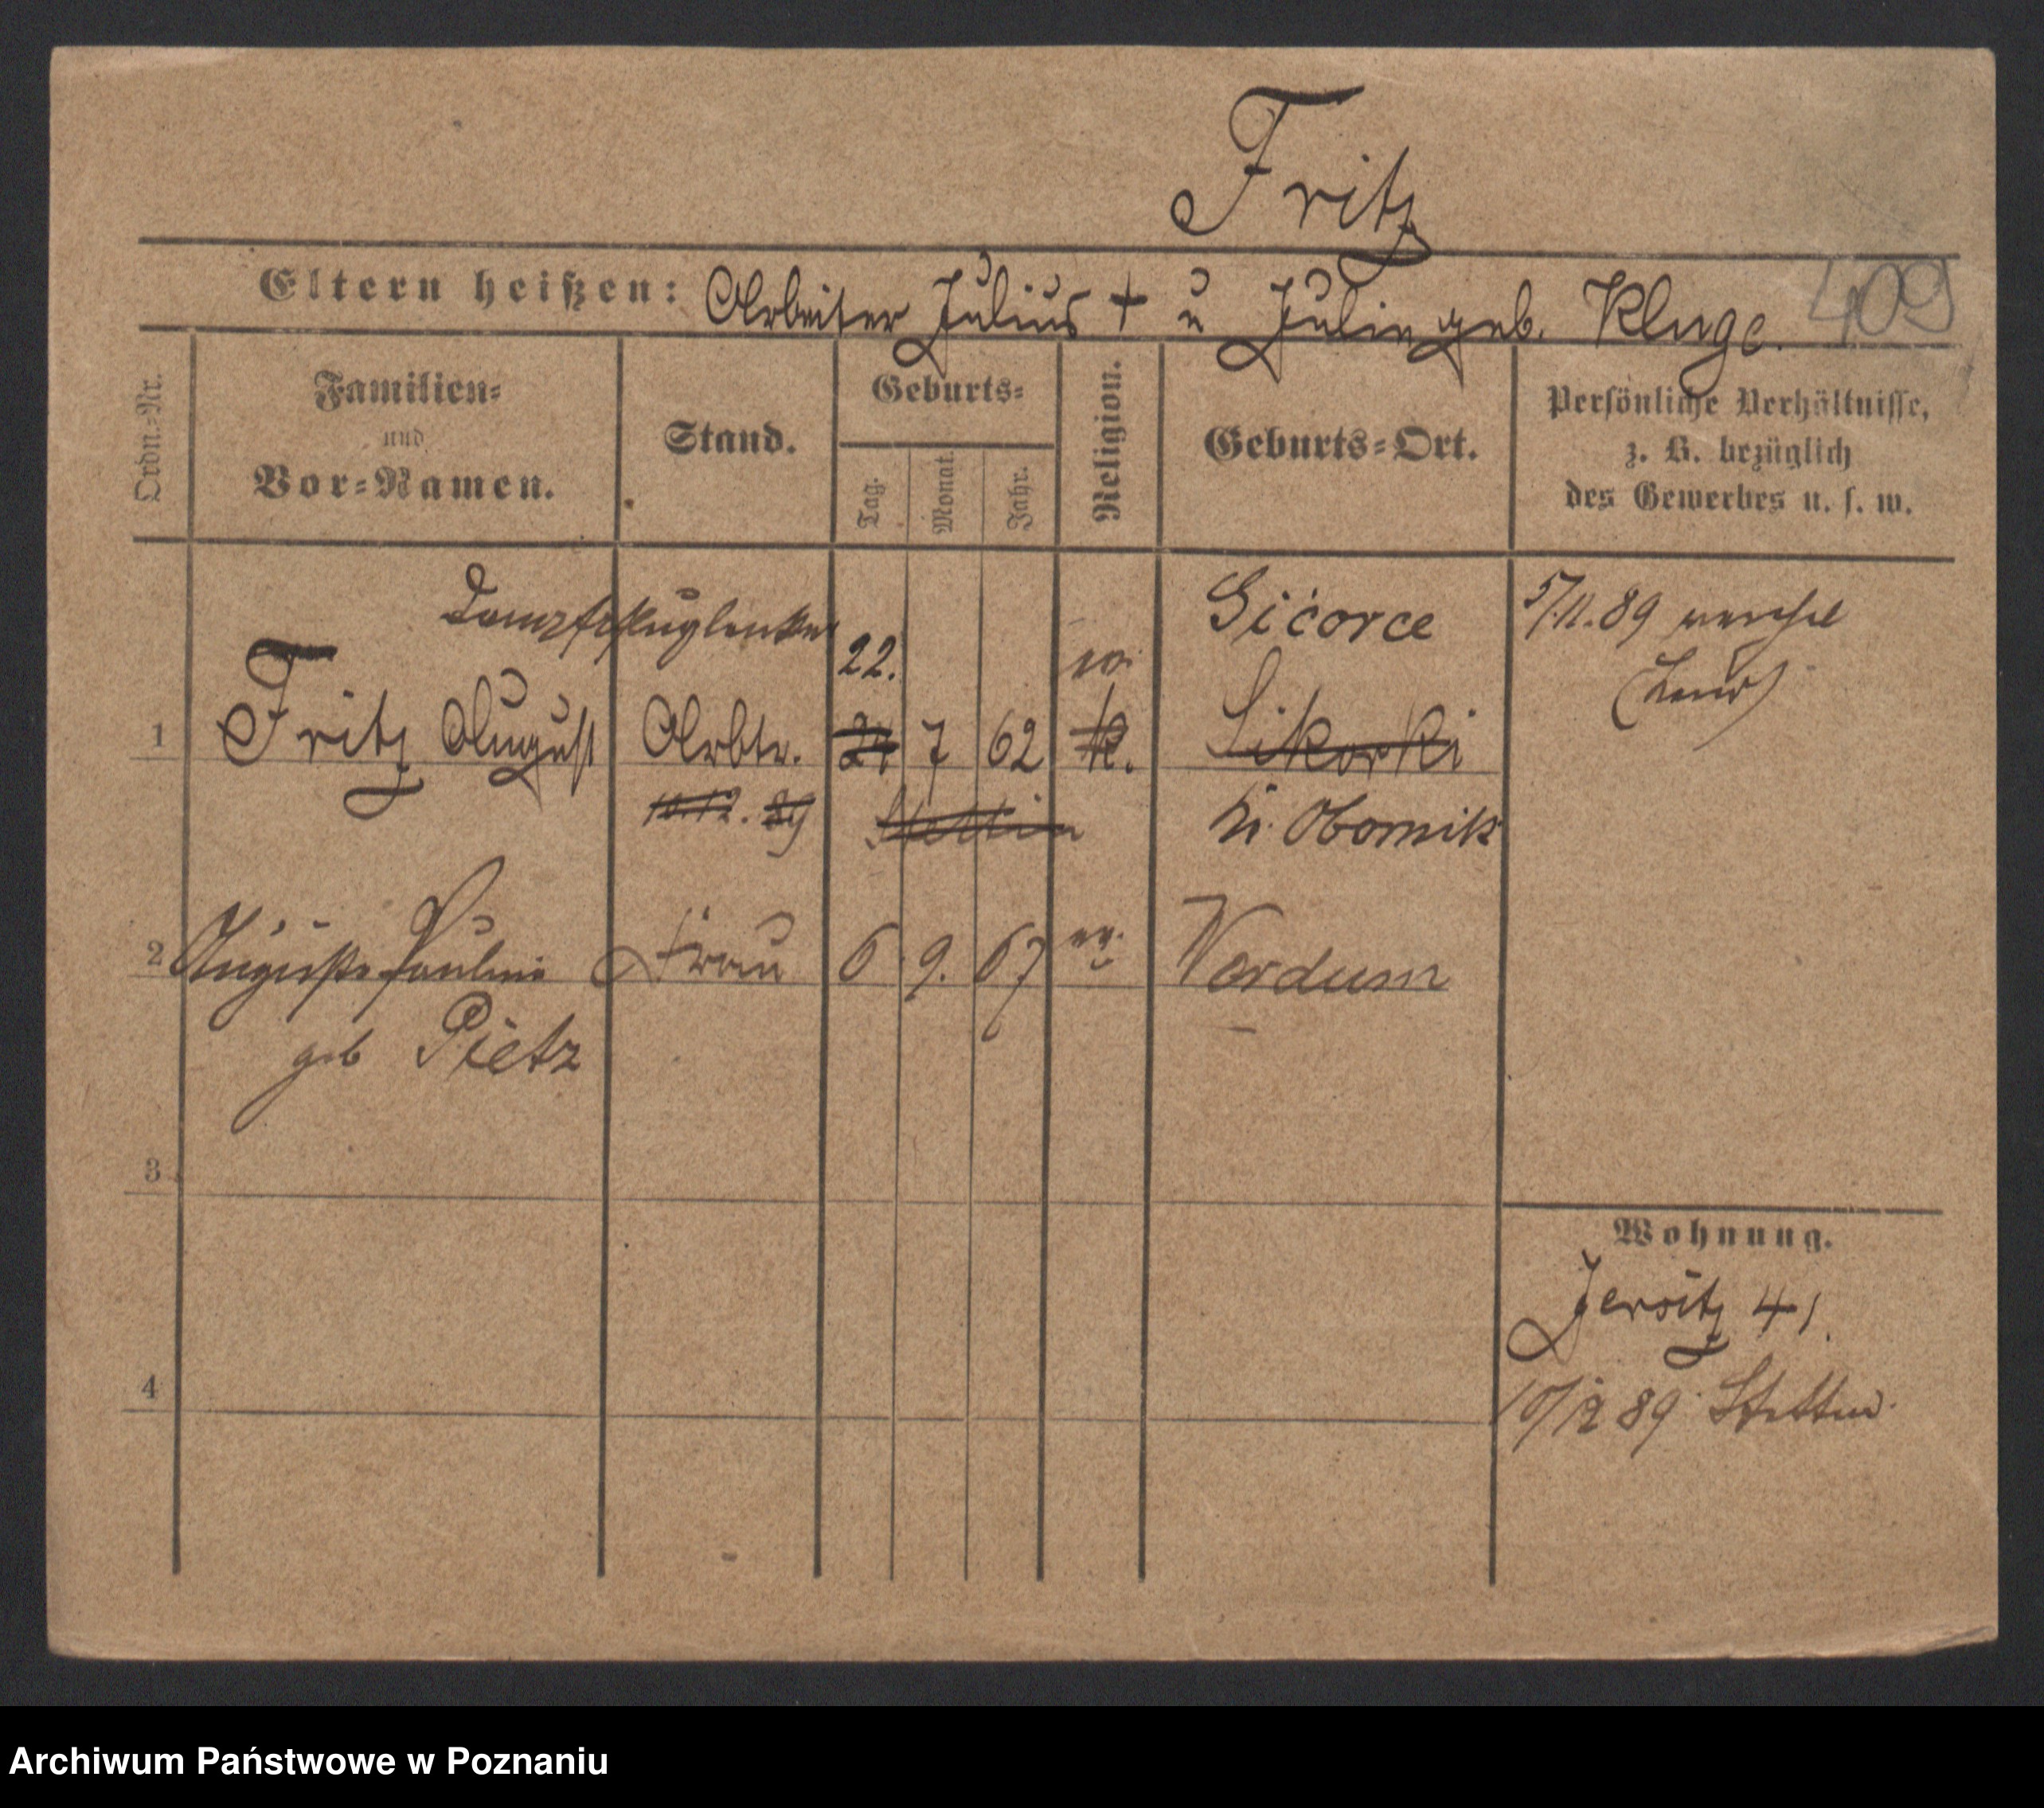 Fritz
409
Eltern heißen: Arbeiter Julius † u Julie geb. Kluge.
Ordn.-Nr.
Familien-
und
Vor-Namen.
Stand.
Geburts-
Tag.
Monat.
Jahr.
Religion.
Geburts-Ort.
Persönliche Verhältnisse,
z. B. bezüglich
des Gewerbes u. s. w.
Dampfpfluglenker
22.
Sićorce
5/11.89
1 Fritz August Arbtr. 24 7 62 k. Sikorki
10 12. 89 Stettin
Kr. Obornik
2 Auguste Pauline Frau 6 9. 67 ev. Vordum
geb Pietz
3
4
Wohnung.
Jersitz 41.
10/12 89 Stettin